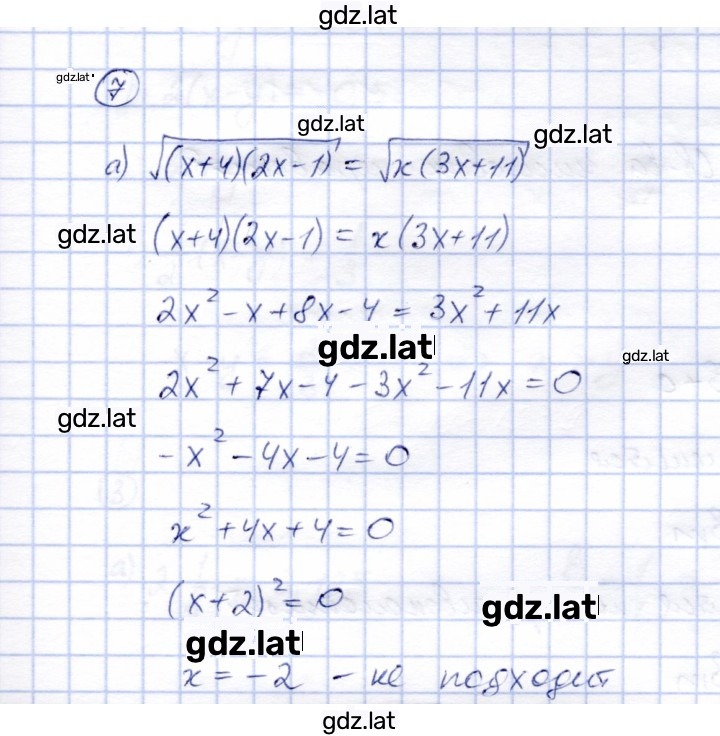 gdz.lat
gdz.lat
7
gdz.lat
gdz.lat
а) √(x+4)(2x-1) = √x(3x+11)
gdz.lat
(x+4)(2x-1) = x(3x+11)
2x² - x + 8x - 4 = 3x² + 11x
gdz.lat
gdz.lat
2x² + 7x - 4 - 3x² - 11x = 0
gdz.lat
-x² - 4x - 4 = 0
x² + 4x + 4 = 0
(x+2)² = 0
gdz.lat
gdz.lat
x = -2 - не подходит
gdz.lat